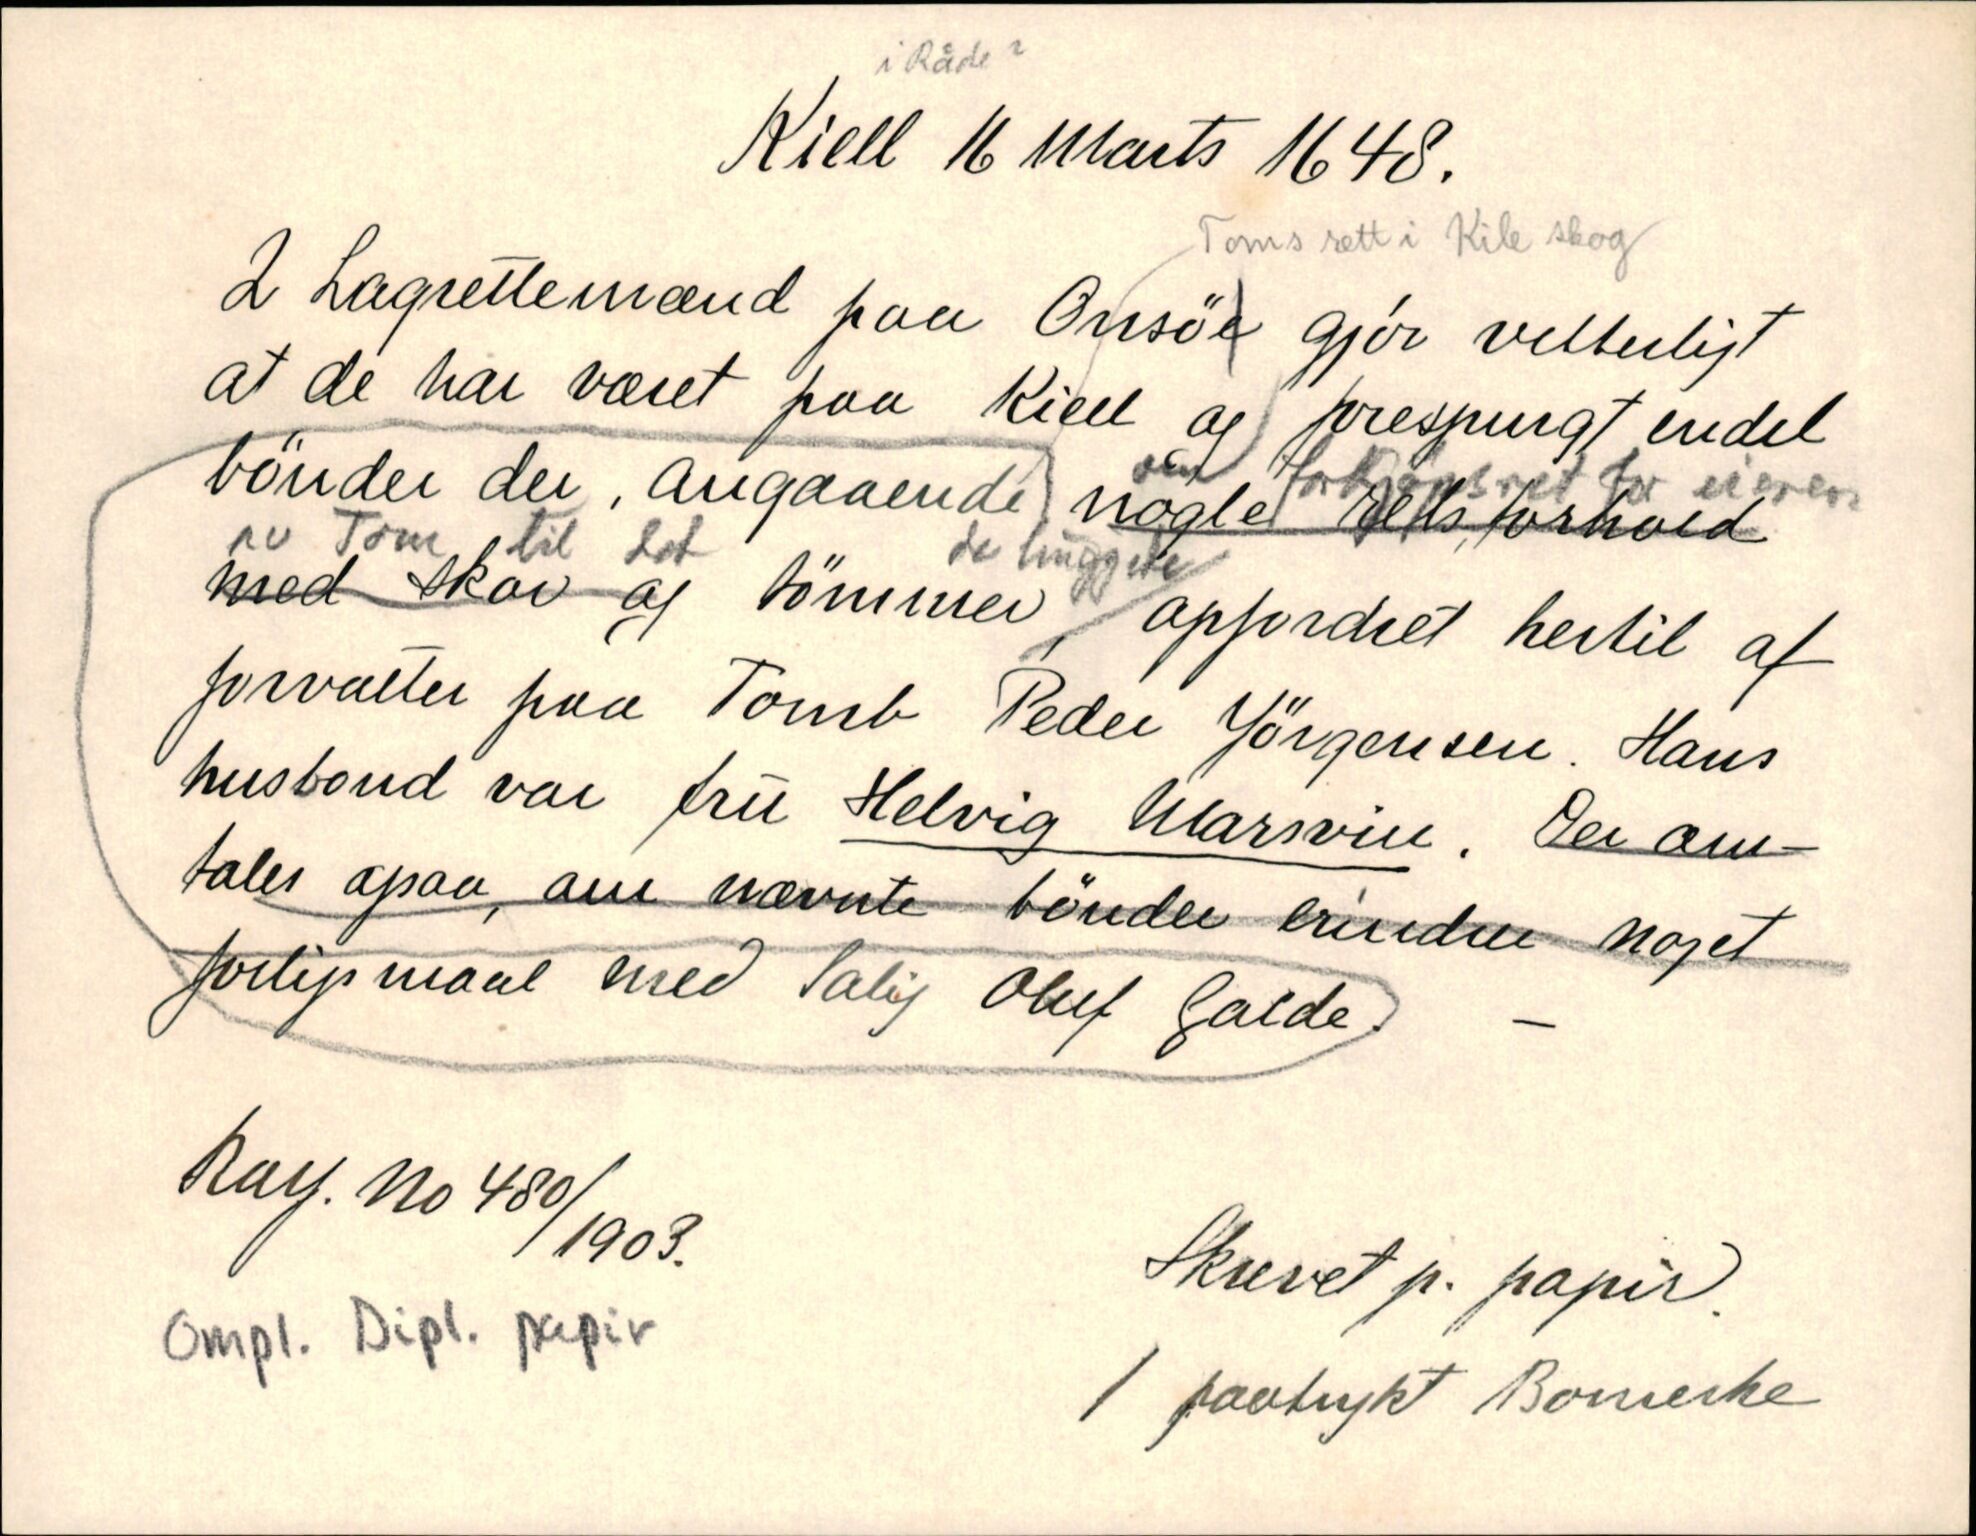 i Råde?
Kiell 16 Marts 1648.
Toms rett i Kile skog
2 Lagrettemænd paa Onsöe gjör vetterligt
at de har været paa Kiell og forespurgt endel
bönder der, angaaende nogle retts forhold
om forkjøpsret for eieren
av Tom til det de huggede
med skov og tömmer, opfordret hertil af
forvalter paa Tomb Peder Jörgensen. Hans
husbond var fru Helvig Marsvin. Der om-
tales ogsaa, om nævnte bönder erindrer noget
forligsmaal med Salig Oluf Galde. –
Kay. No 480/1903.
Skrevet p. papir.
Ompl. Dipl. papir
1 paatrykt Bomerke